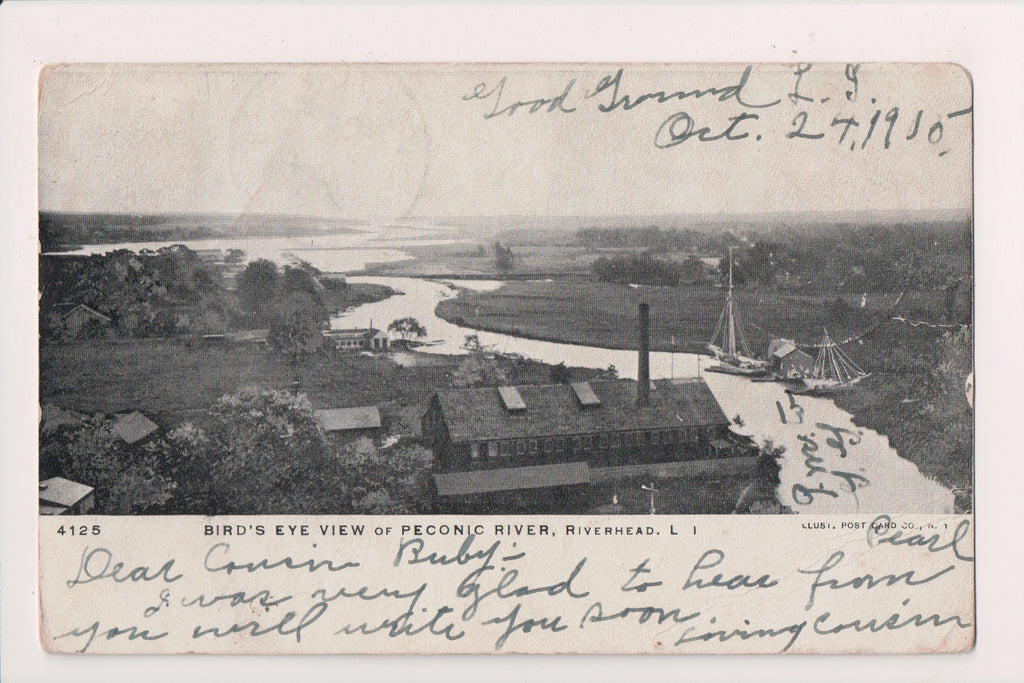 Good Ground L. I.
Oct. 24, 1910.
4125 BIRD'S EYE VIEW OF PECONIC RIVER, RIVERHEAD. L I
ILLUST. POST CARD CO., N. Y
Pearl
Dear Cousin Buby:-
I was very glad to hear from
you will write you soon
Loving cousin